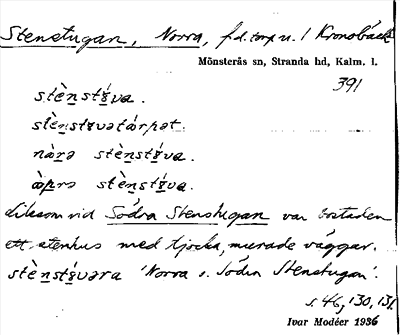 Stenstugan, Norra, f.d. torp u. 1 Kronobäck
Mönsterås sn, Stranda hd, Kalm. l.
391
stè̱nstú̱va.
stè̱nstuvatárpat.
nàrə stè̱nstú̱va.
æ̀prə stè̱nstú̱va.
Liksom vid Södra Stenstugan var bostaden
ett stenhus med tjocka, murade väggar.
stè̱nstú̱vəra 'Norra o. Södra Stenstugan'.
s. 46, 130, 131.
Ivar Modéer 1936